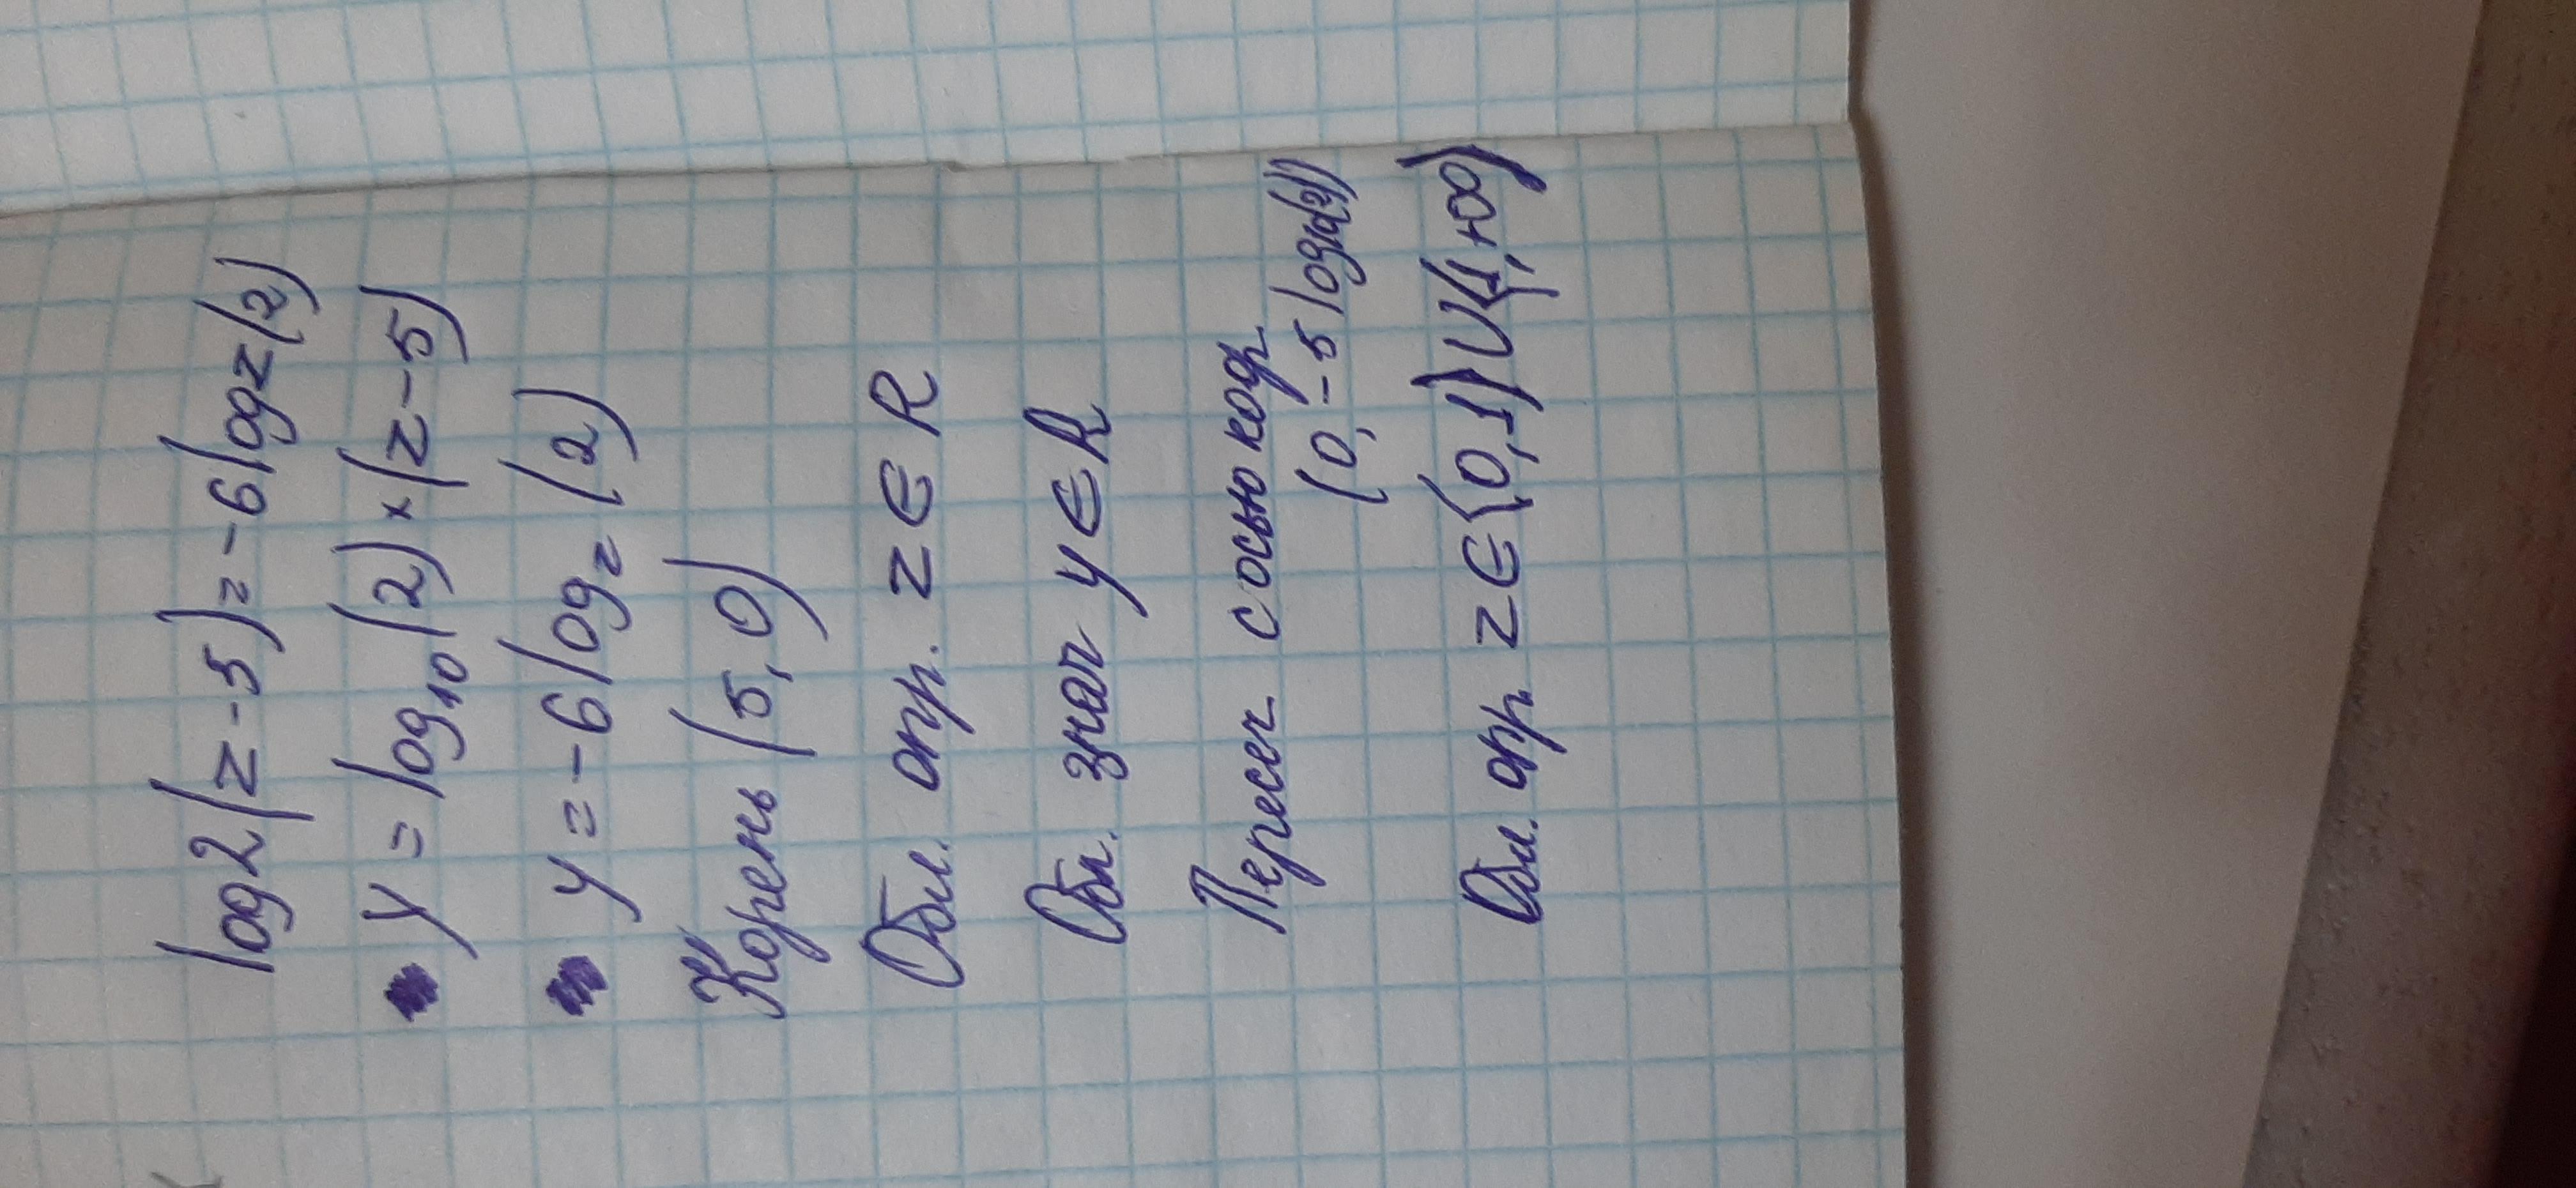 log2(z-5)=-6logz(2)
y=log10(2)×(z-5)
y=-6logz(2)
Корень (5,0)
Обл. опр. z∈R
Обл. знач y∈R
Пересеч с осью коор
(0,-5log10(2))
Обл. опр z∈(0,1)U(1,+∞)